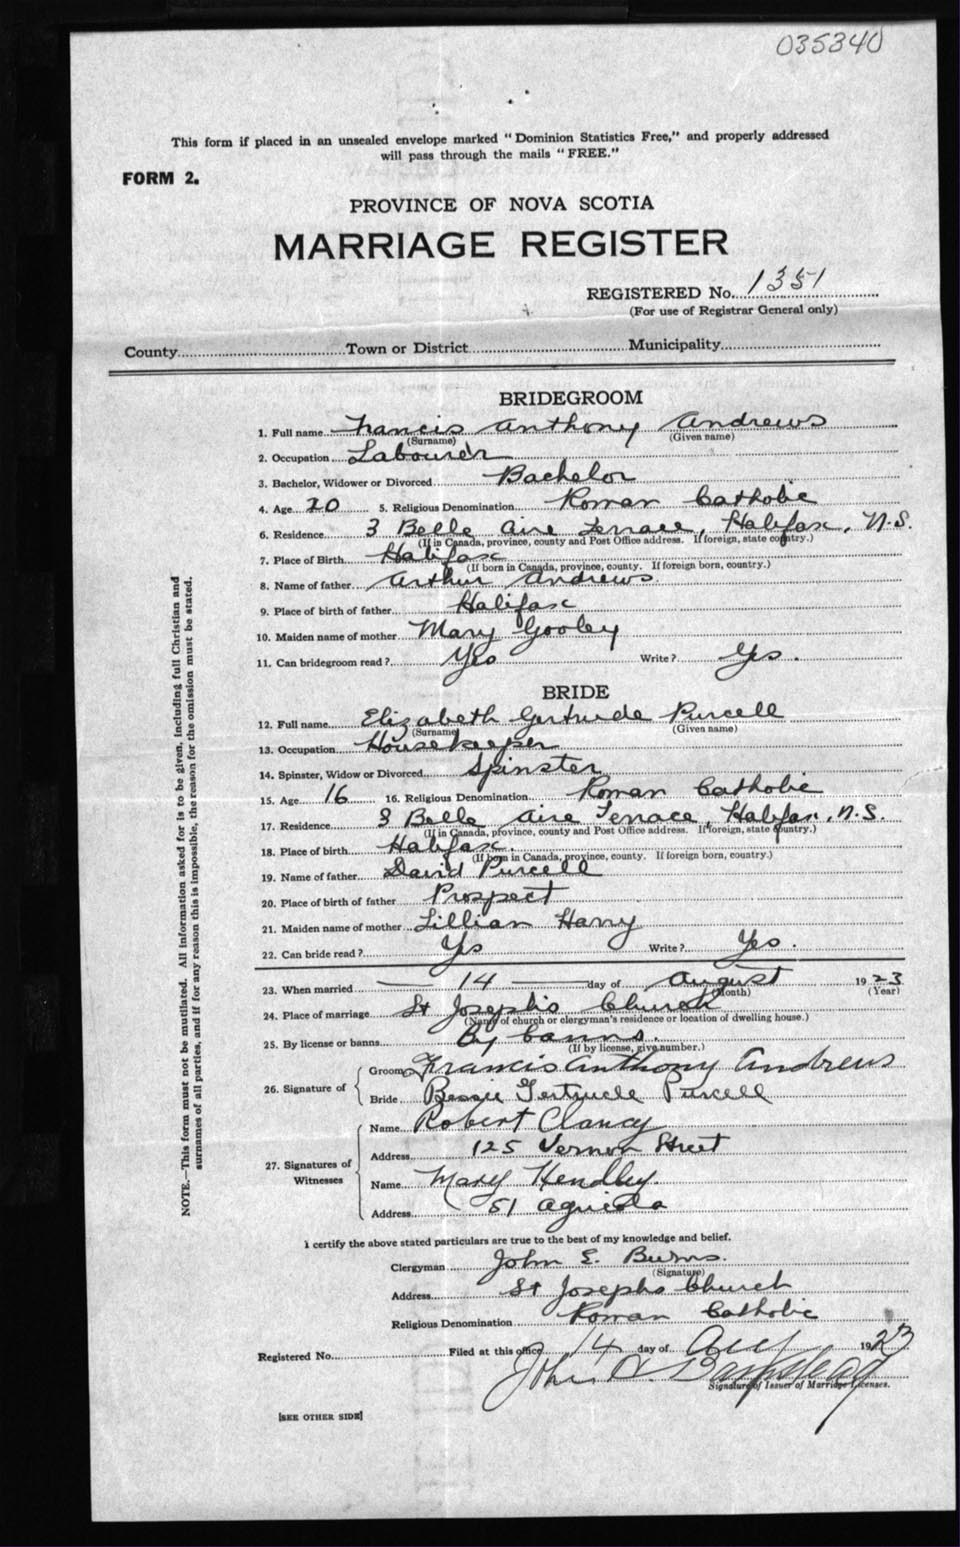 035340
This form if placed in an unsealed envelope marked "Dominion Statistics Free," and properly addressed
will pass through the mails "FREE."
FORM 2.
PROVINCE OF NOVA SCOTIA
MARRIAGE REGISTER
REGISTERED No. 1351
(For use of Registrar General only)
County Town or District Municipality
BRIDEGROOM
1. Full name Francis Anthony Andrews
(Surname) (Given name)
2. Occupation Labourer
3. Bachelor, Widower or Divorced Bachelor
4. Age 20 5. Religious Denomination Roman Catholic
6. Residence 3 Belle Aire Terrace, Halifax, N.S.
(If in Canada, province, county and Post Office address. If foreign, state country.)
7. Place of Birth Halifax
(If born in Canada, province, county. If foreign born, country.)
8. Name of father Arthur Andrews
9. Place of birth of father Halifax
10. Maiden name of mother Mary Gooley
11. Can bridegroom read? Yes Write? Yes.
BRIDE
12. Full name Elizabeth Gertrude Purcell
(Surname) (Given name)
13. Occupation Housekeeper
14. Spinster, Widow or Divorced Spinster
15. Age 16 16. Religious Denomination Roman Catholic
17. Residence 3 Belle Aire Terrace, Halifax, N.S.
(If in Canada, province, county and Post Office address. If foreign, state country.)
18. Place of birth Halifax.
(If born in Canada, province, county. If foreign born, country.)
19. Name of father David Purcell
20. Place of birth of father Prospect
21. Maiden name of mother Lillian Harry
22. Can bride read? Yes Write? Yes.
23. When married 14 day of August 1923
(Month) (Year)
24. Place of marriage St Joseph's Church
(Name of church or clergyman's residence or location of dwelling house.)
25. By license or banns By banns.
(If by license, give number.)
26. Signature of
Groom Francis Anthony Andrews
Bride Bessie Gertrude Purcell
27. Signatures of Witnesses
Name Robert Clancy
Address 125 Vernon Street
Name Mary Hendley.
Address 51 Agricola
I certify the above stated particulars are true to the best of my knowledge and belief.
Clergyman John E. Burns.
(Signature)
Address St Josephs Church
Religious Denomination Roman Catholic
Registered No. Filed at this office 14 day of Aug 1923
John A.
Signature of Issuer of Marriage Licenses.
[SEE OTHER SIDE]
NOTE.—This form must not be mutilated. All information asked for is to be given, including full Christian and
surnames of all parties, and if for any reason this is impossible, the reason for the omission must be stated.